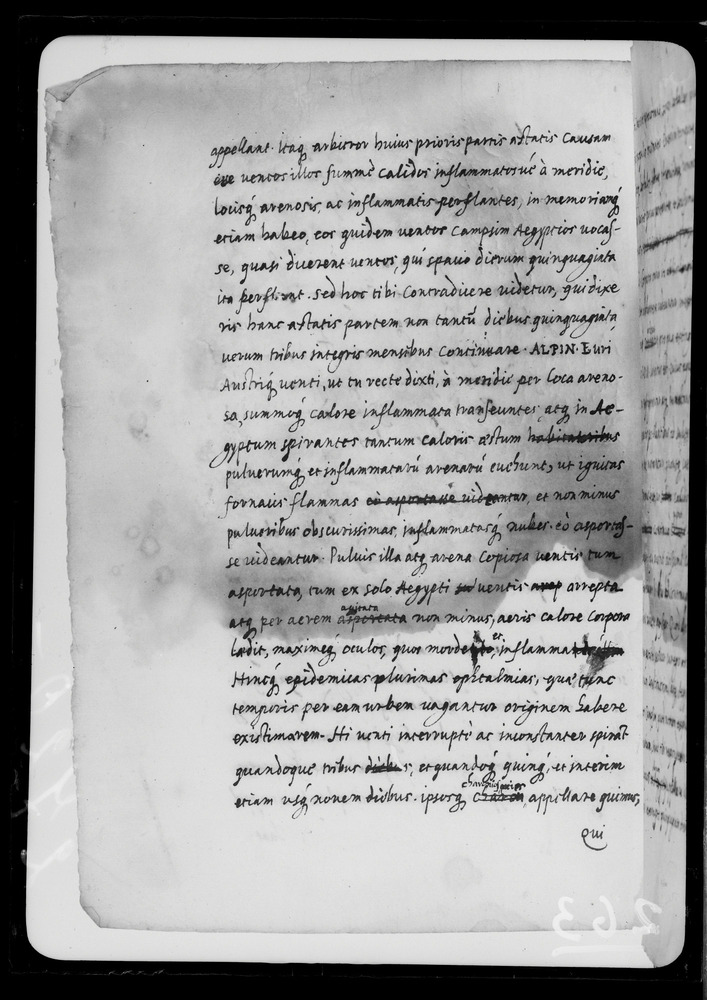 appellant. Itaq; arbitror huius prioris partis aestatis causam
esse ventos illos summè calidos inflammatosvè à meridie,
locisq; arenosis, ac inflammatis perflantes, in memoriamq;
etiam habeo, eos quidem ventos Campsim Aegyptios vocas-
se, quasi dicerent ventos, qui spatio dierum quinquaginta
ita perflant. Sed hoc tibi contradicere videtur, qui dixe
ris hanc aestatis partem non tantũ diebus quinquaginta,
verum tribus integris mensibus continuare. ALPIN. Euri
Austriq; venti, ut tu recte dixti, à meridie per loca areno-
sa, summoq; calore inflammata transeuntes, atq; in Ae-
gyptum spirantes tantum caloris aestum habitatoribus
pulverumq; et inflammatarũ arenarũ evehunt, ut ignitas
fornacis flammas eò asportasse videantur, et non minus
pulveribus obscurissimas, inflammatasq; nubes eò asportas-
se videantur. Pulvis illa atq; arena copiosa ventis tum
asportata, tum ex solo Aegypti ventis arrepta
agitata
atq; per aerem asportata non minus, aeris calore corpora
laedit, maximeq; oculos, quos et inflammat
Hincq; epidemicas plurimas ophtalmias, quae tunc
temporis per eam urbem vagantur originem habere
existimarem. Hi venti interruptè ac inconstanter spirãt
quandoque tribus diebus, et quandoq; quinq;, et interim
etiam usq; novem diebus. ipsosq; appellare quimus,
Qui
263